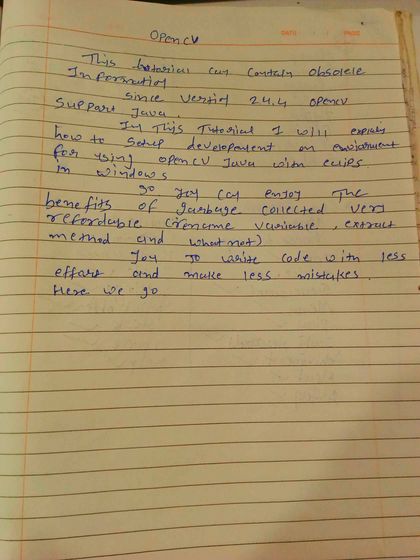 OPENCV
DATE
PAGE
This tutorial can contain obsolele
Information
since vertion 24.4 opencv
Support Java.
In This Tutorial I will explain
how to setup development on enviarment
for using opencv Java with eclips
in windows
so you can enjoy The
benefits of garbage collected very
refordable (rename variable, extract
method and what not)
You to write code with less
effort and make less mistakes.
Here we go